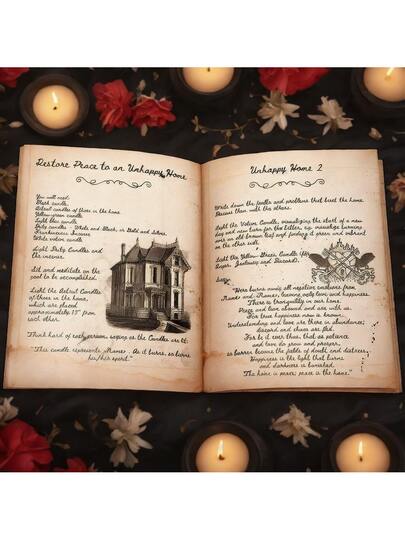 Restore Peace to an Unhappy Home
You will need:
Black candle,
Astral candles of those in the home
Yellow-green candle
Light blue candle
Deity candles - White and Black, or Gold and Silver.
Frankincense Incense
White votive candle
Light Deity Candles and
the incense.
Sit and meditate on the
goal to be accomplished.
Light the Astral Candles
of those in the home,
which are placed
approximately 15" from
each other.
Think hard of each person, saying as the Candles are lit:
"This candle represents (Name). As it burns, so burns
his/her spirit."
Unhappy Home 2
Write down the faults and problems that beset the home.
Discuss them with the others.
Light the Votive Candle, visualizing the start of a new
day and new turn for the better,
was an old brown leaf and finding it green and vibrant
on the other side.
Light the Yellow-Green Candle (for
Anger, Jealousy and Discord).
Say:
"Here burns away all negative emotions from
(Name and Name), leaving only love and happiness.
There is tranquility in our home.
Peace and love abound and are with us.
For true happiness now is known.
Understanding and love are there in abundance;
discord and chaos are fled.
For be it ever thus, that as patience
and love do grow and prosper,
so barren become the fields of doubt and distress.
Happiness is the light that burns
and darkness is banished.
The home is peace; peace is the home."